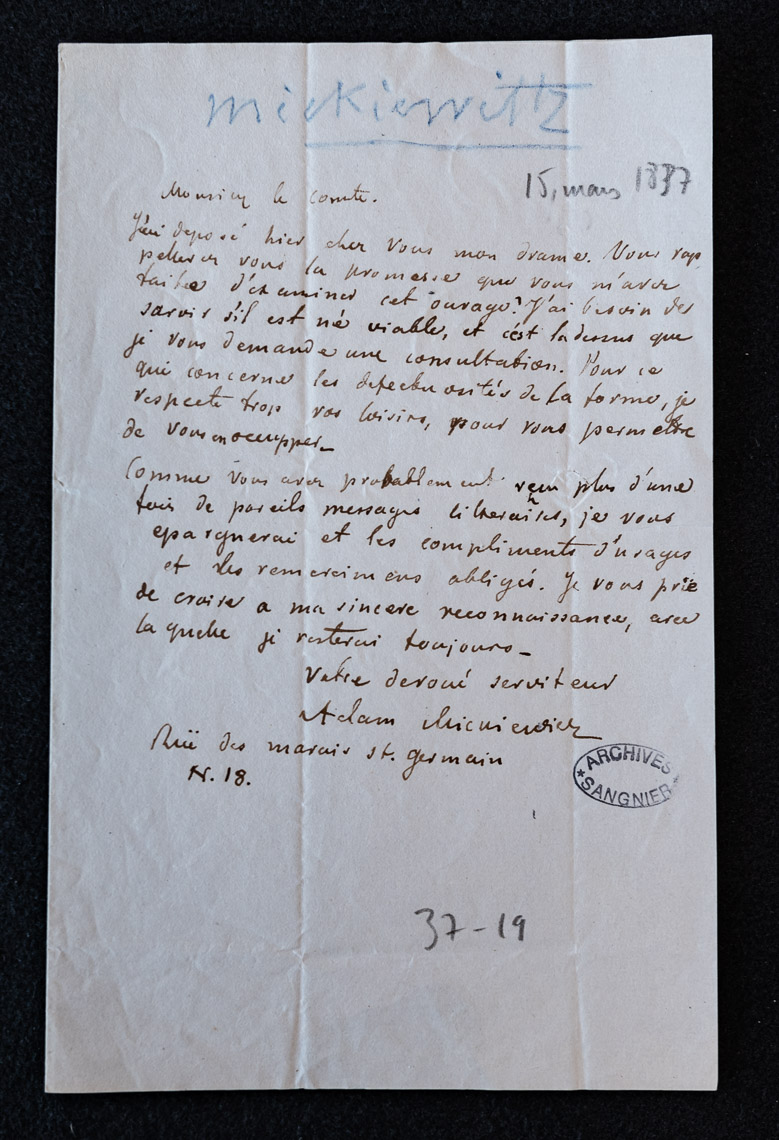 mickiewittz
15, mars 1837
Monsieur le comte.
J'ai deposé hier chez vous mon drame. Vous rap
pellerez vous la promesse que vous m'avez
faite d'examiner cet ouvrage? J'ai besoin de
savoir s'il est né viable, et c'est ladessus que
je vous demande une consultation. Pour ce
qui concerne les defectuosités de la forme, je
respecte trop vos loisirs, pour vous permettre
de vous en occupper_
Comme vous avez probablement reçu plus d'une
fois de pareils messages literaires, je vous
epargnerai et les compliments d'usages
et les remercimens obligés. Je vous prie
de croire a ma sincere reconnaissance, avec
laquelle je resterai toujours_
Votre devoué serviteur
Adam Mickiewicz
Rue des marais st. germain
N. 18.
ARCHIVES
SANGNIER
37-19